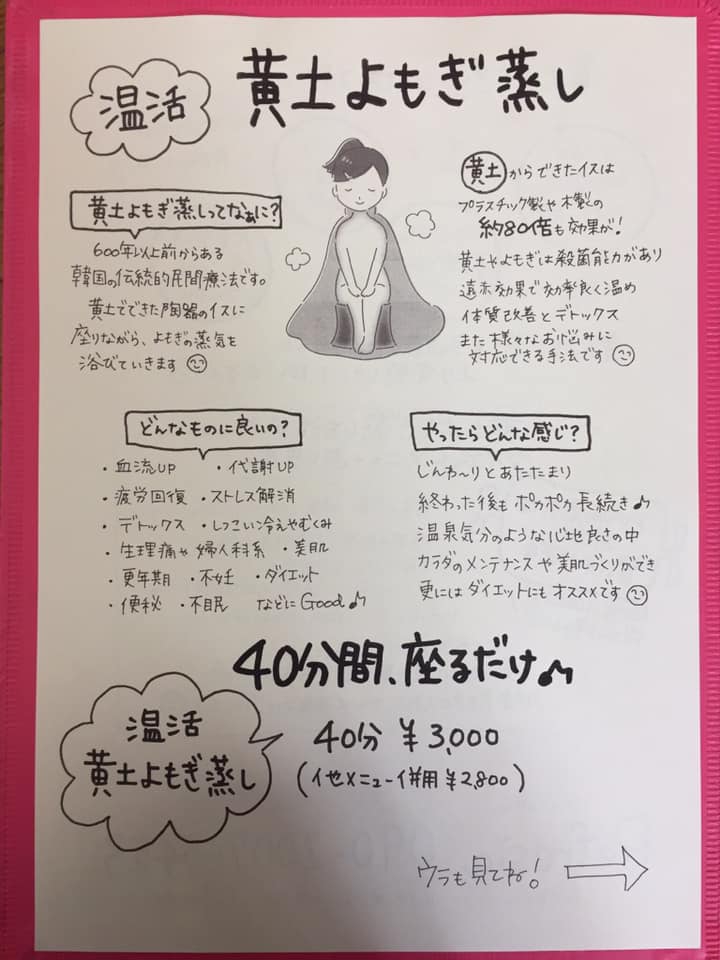 温活
黄土よもぎ蒸し
黄土よもぎ蒸しってなぁに?
600年以上前からある
韓国の伝統的民間療法です。
黄土でできた陶器のイスに
座りながら、よもぎの蒸気を
浴びていきます
黄土からできたイスは
プラスチック製や木製の
約80倍も効果が!
黄土やよもぎは殺菌能力があり
遠赤効果で効率良く温め
体質改善とデトックス
また様々なお悩みに
対応できる手法です
どんなものに良いの?
・血流UP ・代謝UP
・疲労回復 ・ストレス解消
・デトックス ・しつこい冷えやむくみ
・生理痛や婦人科系 ・美肌
・更年期 ・不妊 ・ダイエット
・便秘 ・不眠 などにGood♪
やったらどんな感じ?
じんわ〜りとあたたまり
終わった後もポカポカ長続き♪
温泉気分のような心地良さの中
カラダのメンテナンスや美肌づくりができ
更にはダイエットにもオススメです
40分間、座るだけ♪
温活
黄土よもぎ蒸し
40分 ¥3,000
(他メニュー併用¥2,800)
ウラも見てね!